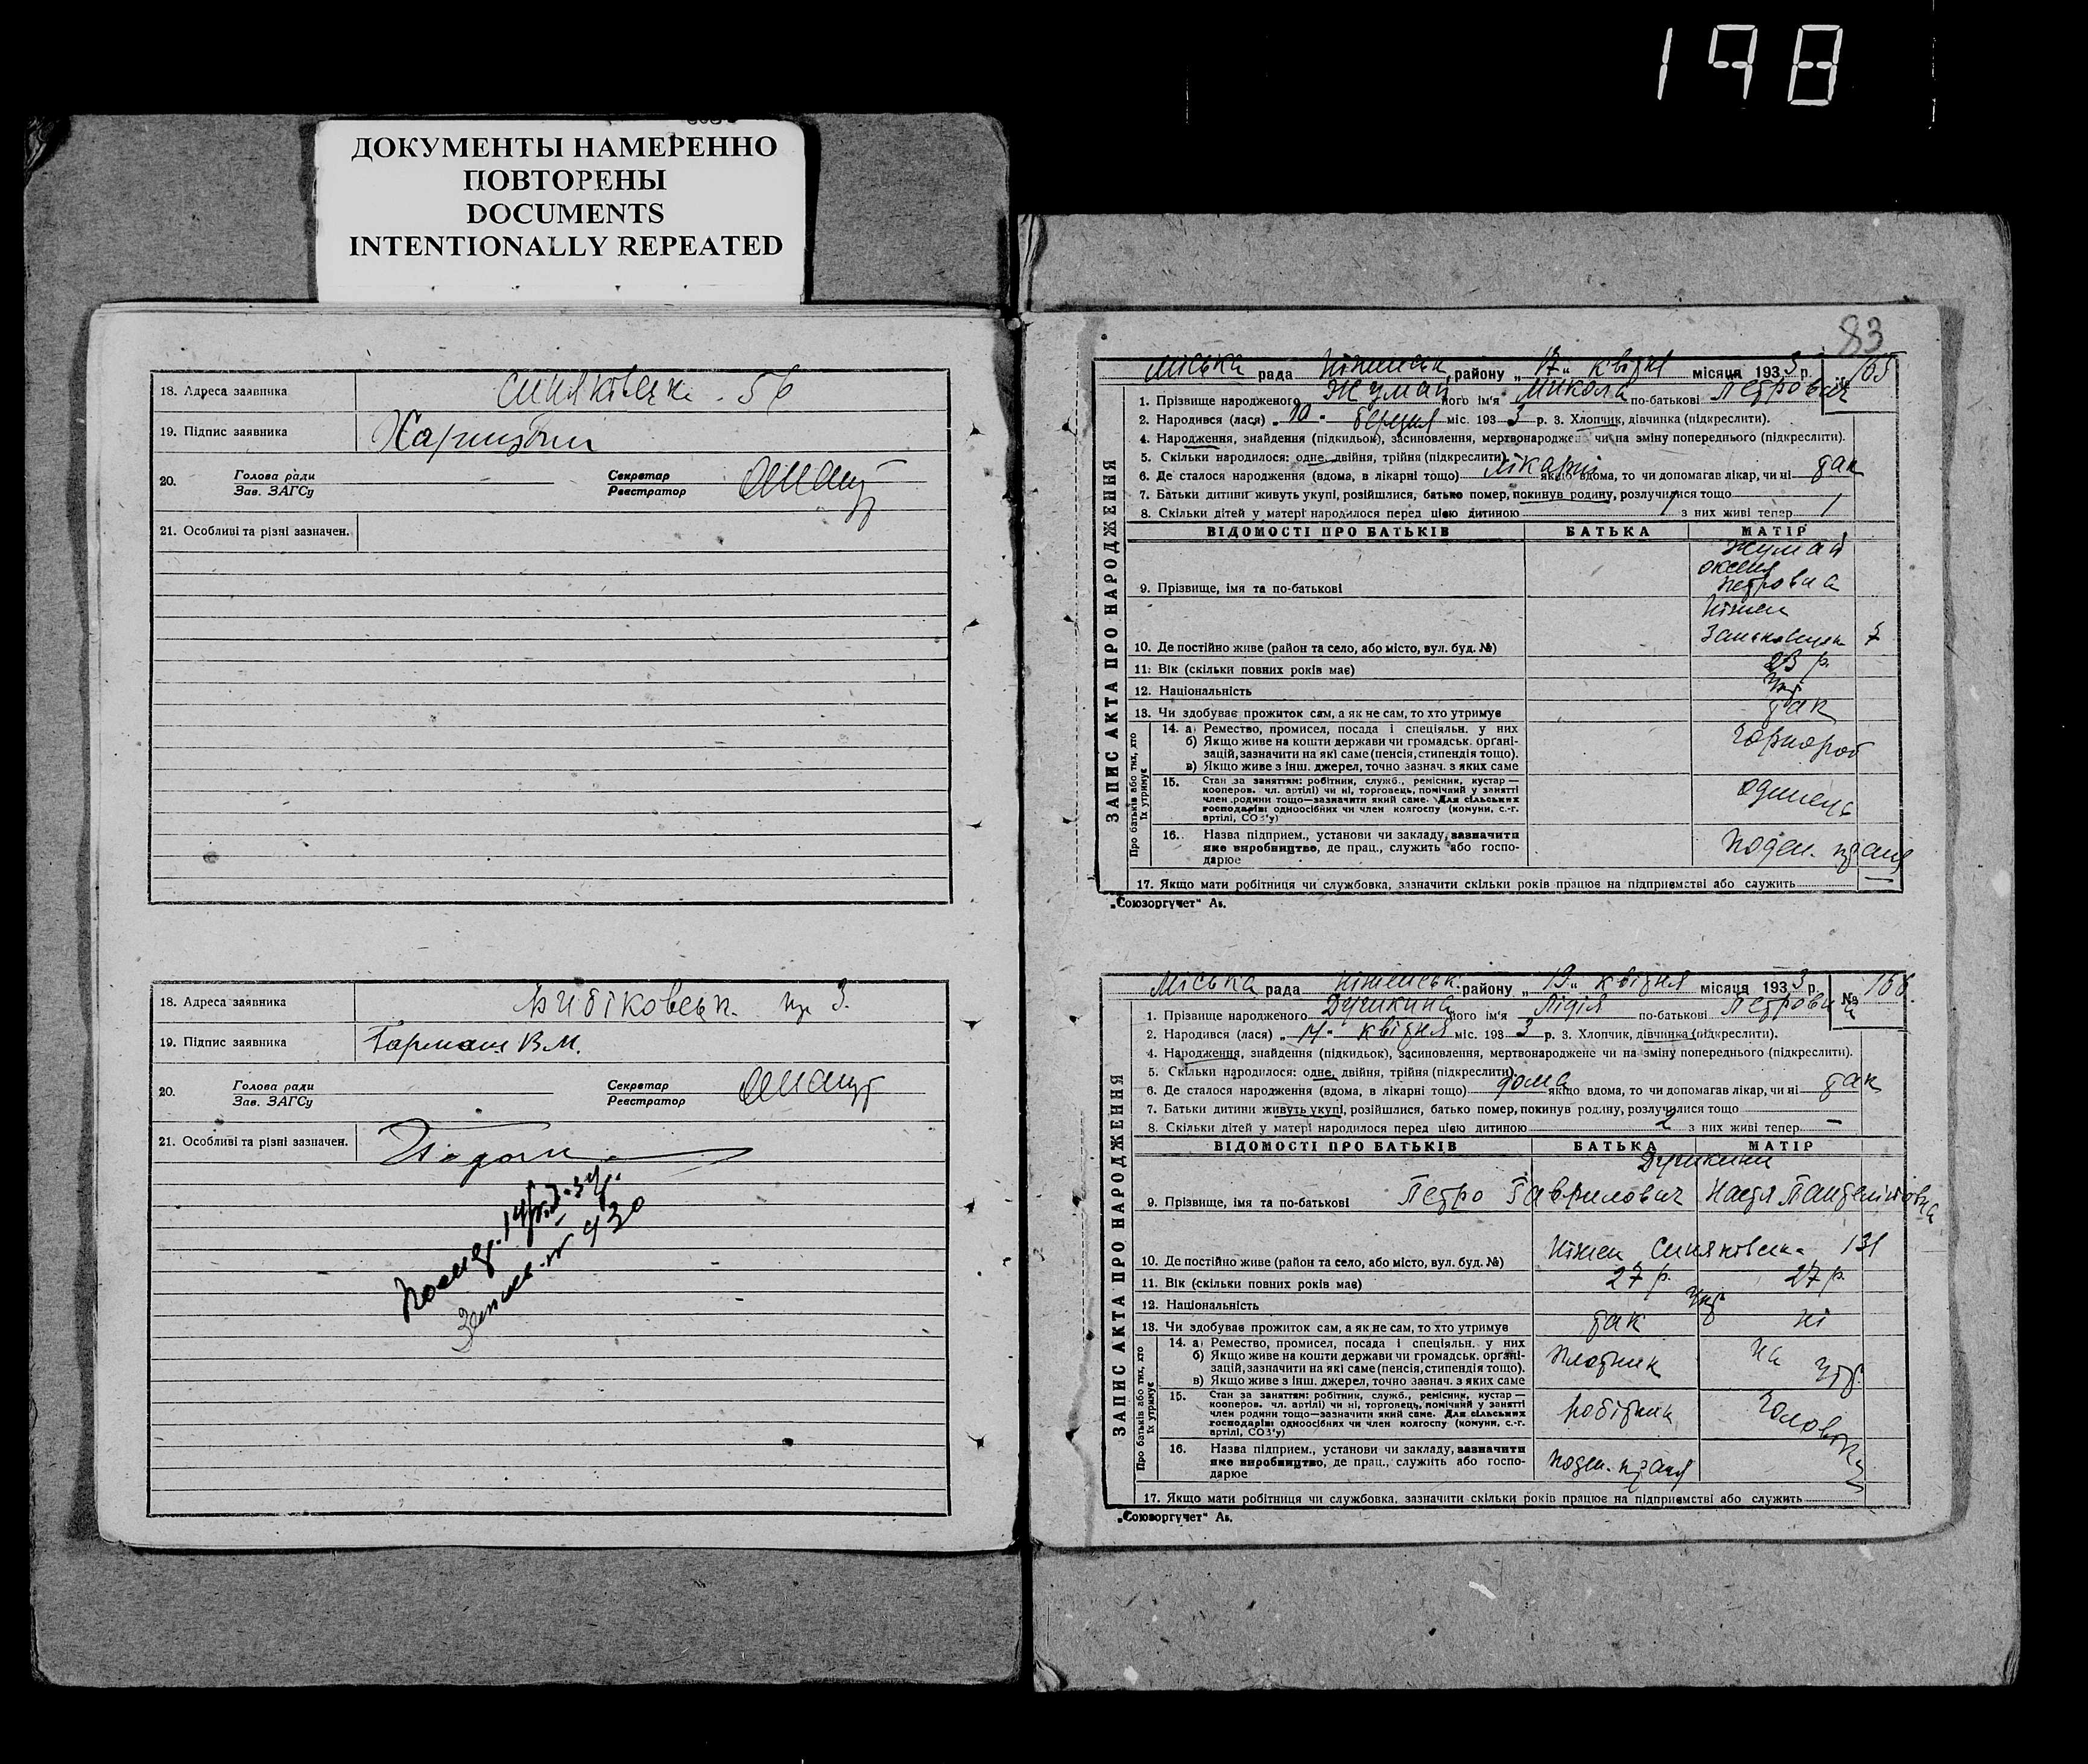 198
ДОКУМЕНТЫ НАМЕРЕННО
ПОВТОРЕНЫ
DOCUMENTS
INTENTIONALLY REPEATED
18. Адреса заявника 56
19. Підпис заявника
20. Голова ради Секретар
Зав. ЗАГСу Реєстратор
21. Особливі та різні зазначен.
18. Адреса заявника 3.
19. Підпис заявника Гармаш В.М.
20. Голова ради Секретар
Зав. ЗАГСу Реєстратор
21. Особливі та різні зазначен.
№ 930
83
ЗАПИС АКТА ПРО НАРОДЖЕННЯ
Міська рада Ніженськ. району „17“ квітня місяця 1933 р. № 165
1. Прізвище народженого Жумай його ім'я Микола по-батькові Петрович
2. Народився (лася) „10“ березня міс. 1933 р. 3. Хлопчик, дівчинка (підкреслити).
4. Народження, знайдення (підкидьок), засиновлення, мертвонароджене чи на зміну попереднього (підкреслити).
5. Скільки народилося: одне, двійня, трійня (підкреслити)
6. Де сталося народження (вдома, в лікарні тощо) лікарні якщо вдома, то чи допомагав лікар, чи ні так
7. Батьки дитини живуть укупі, розійшлися, батько помер, покинув родину, розлучилися тощо
8. Скільки дітей у матері народилося перед цією дитиною 1 з них живі тепер 1
ВІДОМОСТІ ПРО БАТЬКІВ БАТЬКА МАТІР
Жумай
Оксеня
Петровна
9. Прізвище, імя та по-батькові
Ніжен
10. Де постійно живе (район та село, або місто, вул. буд. №) 7
11. Вік (скільки повних років має) 23 р.
12. Національність Укр
13. Чи здобуває прожиток сам, а як не сам, то хто утримує так
Про батьків або тих, хто їх утримує
14. а) Ремество, промисел, посада і спеціяльн. у них чорнороб
б) Якщо живе на кошти держави чи громадськ. органі-
зацій, зазначити на які саме (пенсія, стипендія тощо).
в) Якщо живе з інш. джерел, точно зазнач. з яких саме
15. Стан за заняттям: робітник, служб., ремісник, кустар —
кооперов. чл. артілі) чи ні, торговець, помічний у занятті
член родини тощо—зазначити який саме. Для сільських
господарів: одноосібних чи член колгоспу (комуни, с.-г.
артілі, СОЗ'у)
одинець
16. Назва підприєм., установи чи закладу, зазначити
яке виробництво, де прац., служить або госпо-
дарює
поден. праця
17. Якщо мати робітниця чи службовка, зазначити скільки років працює на підприємстві або служить —
„Союзоргучет“
ЗАПИС АКТА ПРО НАРОДЖЕННЯ
Міська рада Ніженськ. району „19“ квітня місяця 1933 р. № 166
1. Прізвище народженого його ім'я Лідія по-батькові Петровна
2. Народився (лася) „14“ квітня міс. 1933 р. 3. Хлопчик, дівчинка (підкреслити).
4. Народження, знайдення (підкидьок), засиновлення, мертвонароджене чи на зміну попереднього (підкреслити).
5. Скільки народилося: одне, двійня, трійня (підкреслити)
6. Де сталося народження (вдома, в лікарні тощо) дома якщо вдома, то чи допомагав лікар, чи ні так
7. Батьки дитини живуть укупі, розійшлися, батько помер, покинув родину, розлучилися тощо
8. Скільки дітей у матері народилося перед цією дитиною 2 з них живі тепер —
ВІДОМОСТІ ПРО БАТЬКІВ БАТЬКА МАТІР
9. Прізвище, імя та по-батькові Петро Гаврилович Настя
10. Де постійно живе (район та село, або місто, вул. буд. №) Ніжен Синяківськ. 131
11. Вік (скільки повних років має) 27 р. 27 р.
12. Національність Укр
13. Чи здобуває прожиток сам, а як не сам, то хто утримує так ні
Про батьків або тих, хто їх утримує
14. а) Ремество, промисел, посада і спеціяльн. у них
б) Якщо живе на кошти держави чи громадськ. органі-
зацій, зазначити на які саме (пенсія, стипендія тощо).
в) Якщо живе з інш. джерел, точно зазнач. з яких саме
плотник на утр.
15. Стан за заняттям: робітник, служб., ремісник, кустар —
кооперов. чл. артілі) чи ні, торговець, помічний у занятті
член родини тощо—зазначити який саме. Для сільських
господарів: одноосібних чи член колгоспу (комуни, с.-г.
артілі, СОЗ'у)
робітник
16. Назва підприєм., установи чи закладу, зазначити
яке виробництво, де прац., служить або госпо-
дарює
поден. праця
17. Якщо мати робітниця чи службовка, зазначити скільки років працює на підприємстві або служить
„Союзоргучет“